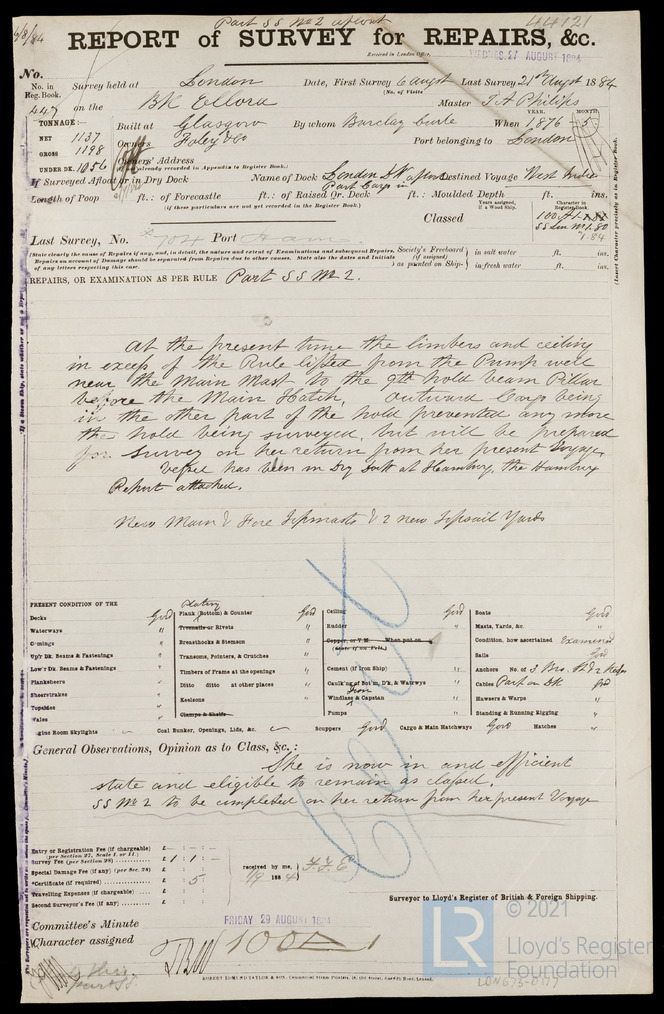 Part SS No 2 afloat
44121
6/8/84
REPORT of SURVEY for REPAIRS, &c.
Received in London Office,
WEDNES. 27 AUGUST 1884
No.
No. in Reg. Book. Survey held at London Date, First Survey 6 Augt Last Survey 21st Augst 1884
(No. of Visits
447 on the BK Ellora Master T A Philips
TONNAGE:— Built at Glasgow By whom Barclay Curle When 1876 5
YEAR. MONTH.
NET 1137 Owners Foley & Co Port belonging to London
GROSS 1198
UNDER DK. 1056 Owners' Address
(If not already recorded in Appendix to Register Book.)
If Surveyed Afloat or in Dry Dock Name of Dock London Dk afloat Destined Voyage West Indies
Part Cargo in
Length of Poop ft.: of Forecastle ft.: of Raised Qr. Deck ft.: Moulded Depth ft. ins.
(if these particulars are not yet recorded in the Register Book.)
Years assigned, if a Wood Ship.
Character in Register Book
Classed 100 A1
SS Lon No 1.80
1.84
Last Survey, No. 704 Port Ham
(State clearly the cause of Repairs if any, and, in detail, the nature and extent of Examinations and subsequent Repairs. Repairs on account of Damage should be separated from Repairs due to other causes. State also the dates and Initials of any letters respecting this case.
Society's Freeboard (if assigned) as painted on Ship- in salt water ft. ins.
in fresh water ft. ins.
REPAIRS, OR EXAMINATION AS PER RULE Part SS No 2.
At the present time the limbers and ceiling
in excess of the Rule lifted from the Pump well
near the Main Mast to the 9th hold beam Pillar
before the Main Hatch, Outward Cargo being
in the other part of the hold prevented any more
the hold being surveyed, but will be prepared
for survey on her return from her present Voyage,
Vessel has been in Dry Dock at Hamburg, the Hamburg
Report attached.
New Main & Fore Topmasts & 2 new Topsail Yards
PRESENT CONDITION OF THE
Decks Good
Waterways "
Comings "
Up'r Dk. Beams & Fastenings "
Low'r Dk. Beams & Fastenings "
Planksheers "
Sheerstrakes "
Topsides "
Wales "
Engine Room Skylights
Plating
Plank (Bottom) & Counter Good
Treenails or Rivets "
Breasthooks & Stemson "
Transoms, Pointers, & Crutches "
Timbers of Frame at the openings "
Ditto ditto at other places "
Keelsons "
Clamps & Shelfs
Coal Bunker, Openings, Lids, &c.
Ceiling Good
Rudder "
Copper, or Y.M. When put on
(State if on Felt.)
Cement (if Iron Ship) "
Caulk'ng of Bot'm, D'k, & Watrways "
Iron
Windlass & Capstan "
Pumps "
Scuppers Good Cargo & Main Hatchways Good Hatches "
Boats Good
Masts, Yards, &c. "
Condition, how ascertained Examined
Sails Good
Anchors No. of 3 Bro. St & 2 Kedges
Cables Part on Dk Good
Hawsers & Warps "
Standing & Running Rigging "
General Observations, Opinion as to Class, &c.:
She is now in and efficient
state and eligible to remain as classed.
SS No 2 to be completed on her return from her present Voyage
Entry or Registration Fee (if chargeable) £
(per Section 27, Scale I. or II.)
Survey Fee (per Section 28) £ 1 : 1 : —
Special Damage Fee (if any) (per Sec. 28) £
*Certificate (if required) £ : 5 :
Travelling Expenses (if chargeable) £
Second Surveyor's Fee (if any) £
received by me,
1/9 1884
Surveyor to Lloyd's Register of British & Foreign Shipping.
Committee's Minute FRIDAY 29 AUGUST 1884
Character assigned 100 A 1
ROBERT EDMUND TAYLOR & SON, Commercial Steam Printers, 19, Old Street, Goswell Road, London.
LR
© 2021
Lloyd's Register
Foundation
LON673-0177